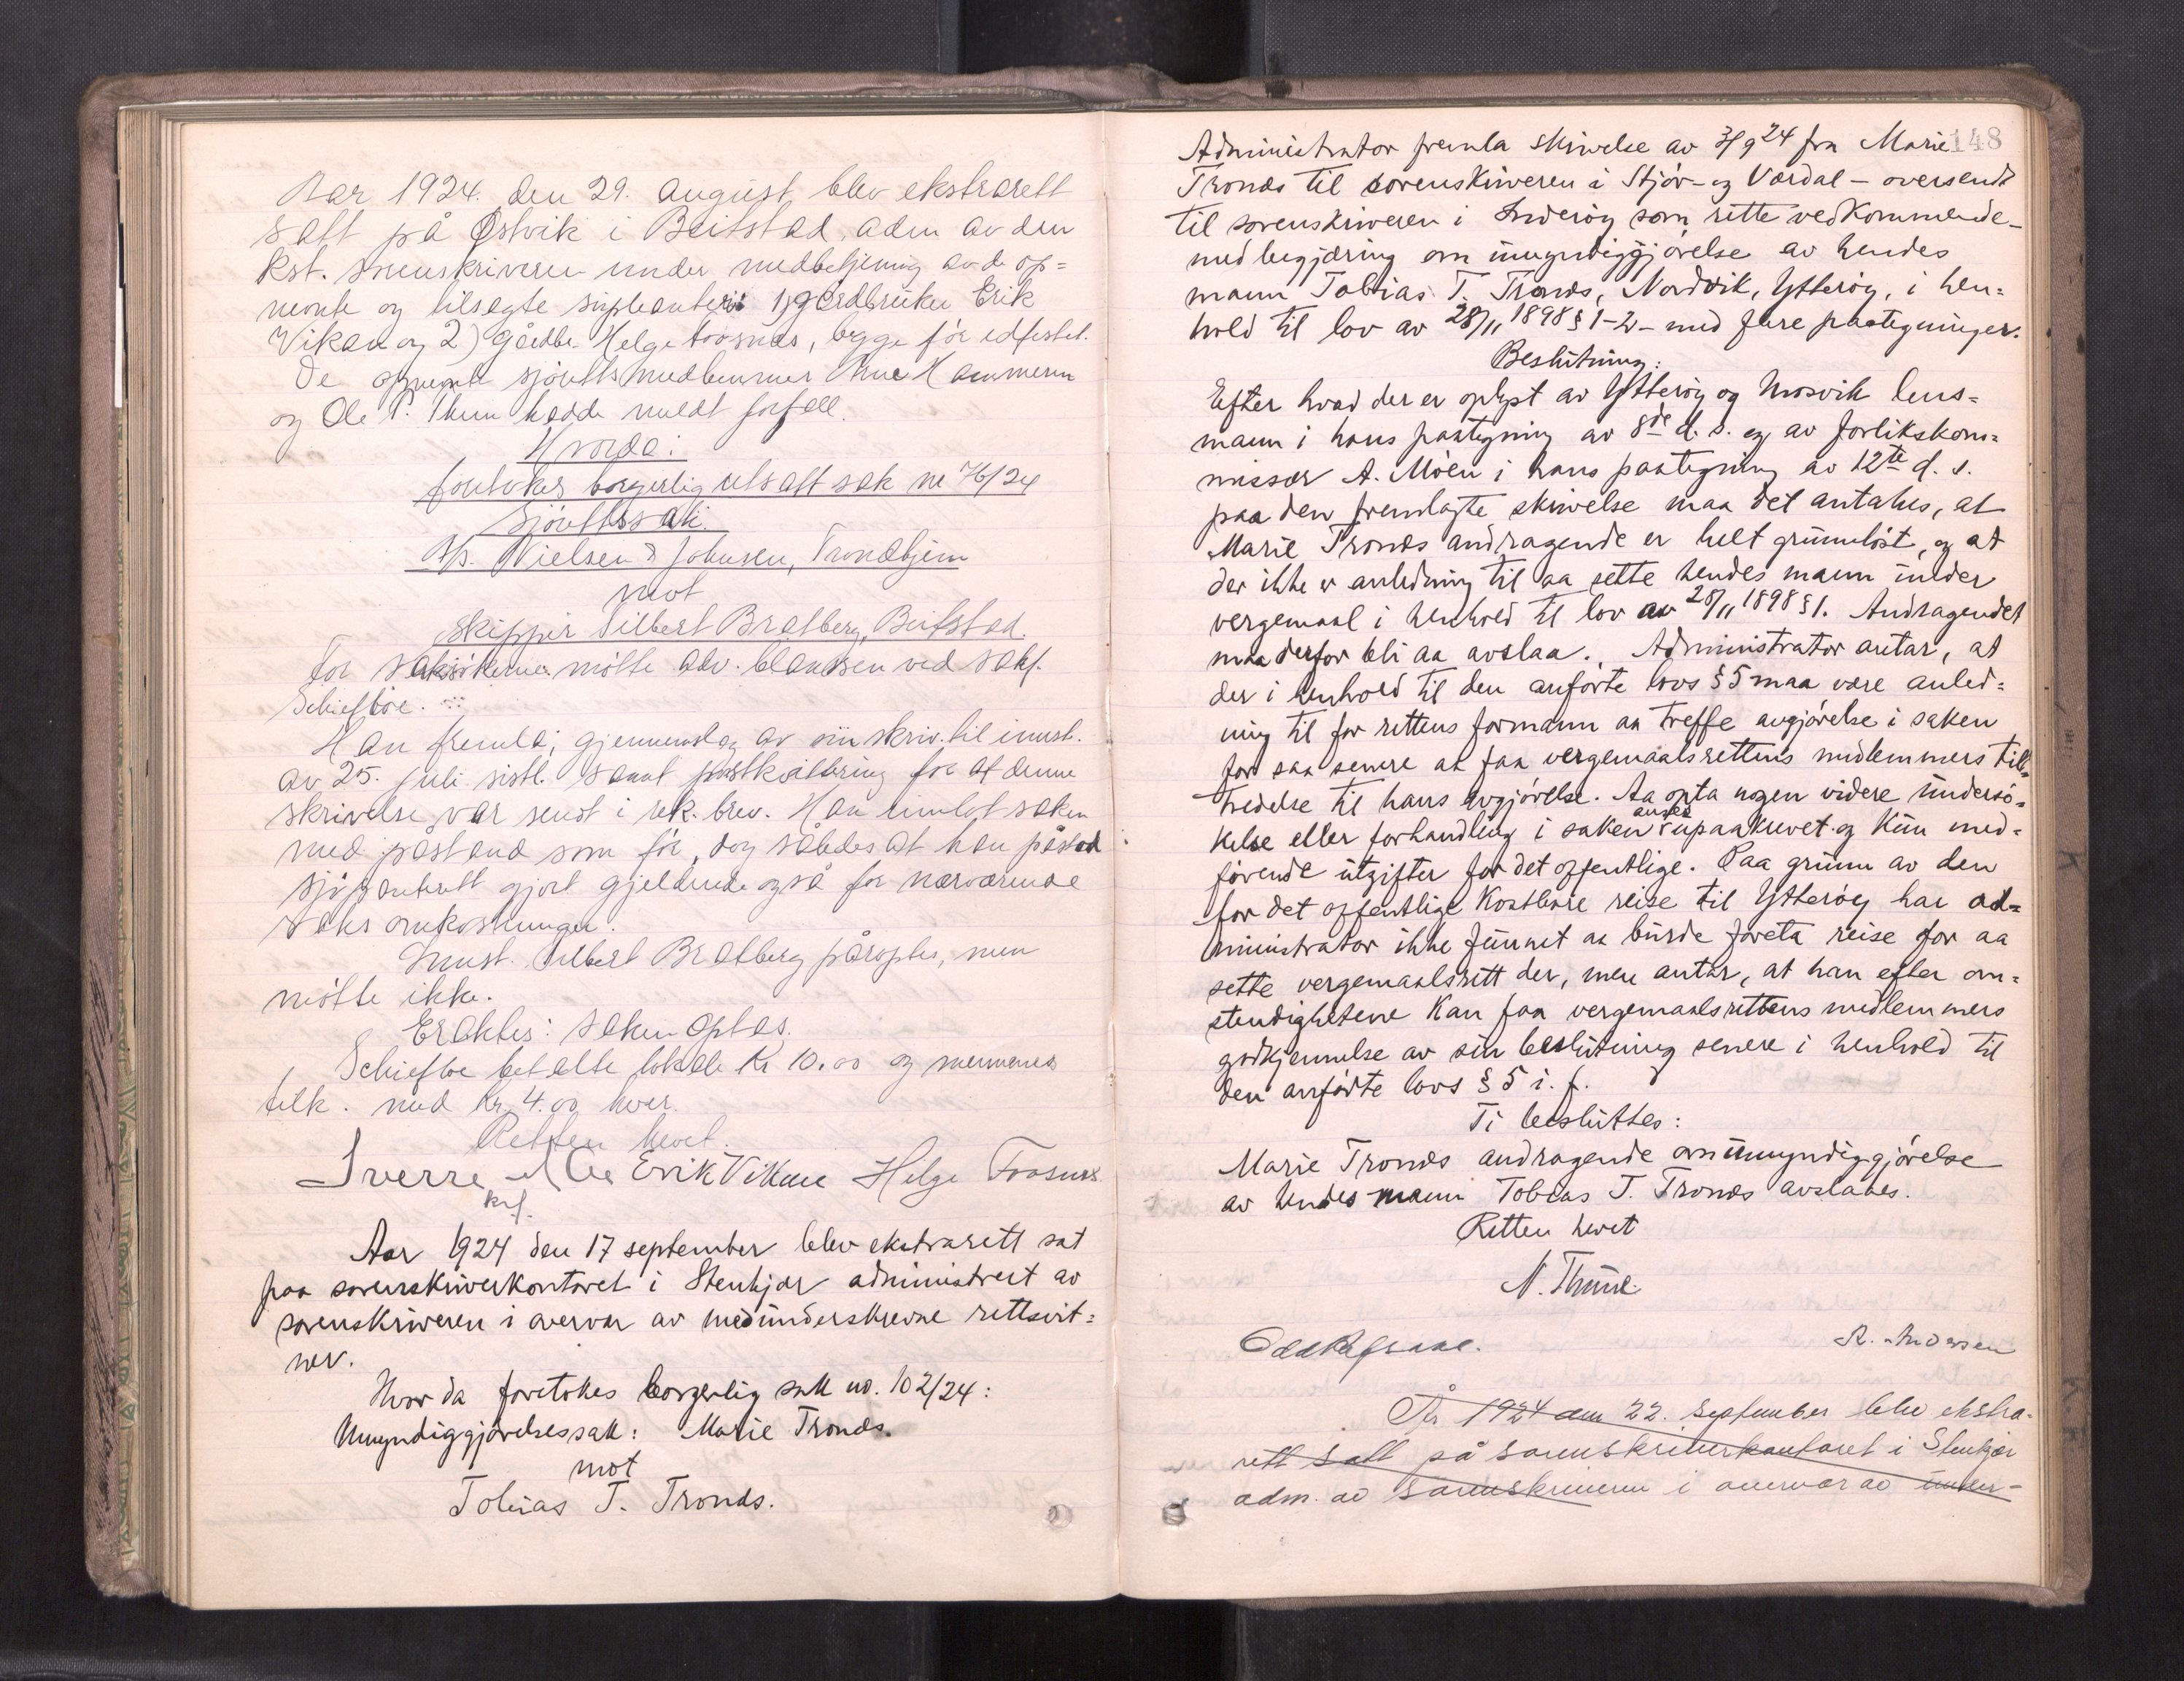 Aar 1924. den 29. august blev ekstrarett
satt på Østvik i Beitstad, adm av den
kst. sorenskriveren under medbetjening av de op=
nevnte og tilsagte suppleanter: 1) gårdbruker Erik
Vikan og 2) gårdbr. Helge Fossnes, begge før edfestet.
De opnevnte sjørettsmedlemmer Arne Hammerm
og Ole P. Thun hadde meldt forfall.
Hvorda:
foretokes borgerlig utsatt sak nr 76/24
Sjørettssak:
A/s. Nielsen & Johnsen, Trondhjem
mot
Skipper Hilbert Bratberg, Beitstad.
For saksøkerne møtte adv. Claussen ved sakf.
Schiefloe.
Han fremla; gjennemslag av sin skriv. til innst.
av 25. juli sistl. samt postkvittering for at denne
skrivelse var sendt i rek. brev. Han innlot saken
med påstand som før, dog således at han påstod
sjøpanterett gjort gjeldende også for nærværende
saks omkostninger.
Innst. Hilbert Bratberg påroptes, men
møtte ikke.
Eraktes: Saken optas.
Schiefloe betalte lokale Kr 10.00 og mennenes
tilk. med Kr. 4.00 hver.
Retten hevet.
Sverre Moe Erik Vikan Helge Fossnes
kst.
Aar 1924 den 17 september blev ekstrarett sat
paa sorenskriverkontoret i Stenkjær administrert av
sorenskriveren i overvær av medunderskrevne rettsvit=
ner.
Hvor da foretokes borgerlig sak no. 102/24:
Umyndiggjørelsessak: Marie Tronds.
mot
Tobias T. Tronds.
148
Administrator fremla skrivelse av 3/9 24 fra Marie
Tronds til sorenskriveren i Stjør- og Værdal – oversendt
til sorenskriveren i Inderøy som rette vedkommende –
med begjæring om umyndiggjørelse av hendes
mann Tobias T. Tronds, Nordvik, Ytterøy, i hen=
hold til lov av 28/11 1898 § 1-2 – med flere paategninger.
Beslutning:
Efter hvad der er oplyst av Ytterøy og Mosvik lens=
mann i hans paategning av 8de d. s. og av forlikskom=
missær A. Moen i hans paategning av 12te d. s.
paa den fremlagte skrivelse maa det antahes, at
Marie Tronds andragende er helt grunnløst, og at
der ikke er anledning til aa sette hendes mann under
vergemaal i henhold til lov av 28/11 1898 § 1. Andragendet
maa derfor bli aa avslaa. Administrator antar, at
der i henhold til den anførte lovs § 5 maa være anled=
ning til for rettens formann aa treffe avgjørelse i saken
for saa senere aa faa vergemaalsrettens medlemmers til=
tredelse til hans avgjørelse. Aa opta nogen videre undersø=
kelse eller forhandling i saken anser upaakrevet og kun med=
førende utgifter for det offentlige. Paa grunn av den
for det offentlige kostbare reise til Ytterøy har ad=
ministrator ikke funnet aa burde foreta reise for aa
sette vergemaalsrett der, men antar, at han efter om=
stendighetene kan faa vergemaalsrettens medlemmers
godkjennelse av sin beslutning senere i henhold til
den anførte lovs § 5 i. f.
Ti besluttes:
Marie Tronds andragende om umyndiggjørelse
av hendes mann Tobias T. Tronds avslaaes.
Retten hevet
N. Thune.
A. Andersen
År 1924 den 22. september blev ekstra-
rett satt på sorenskriverkontoret i Stenkjær
adm. av sorenskriveren i overvær av under-